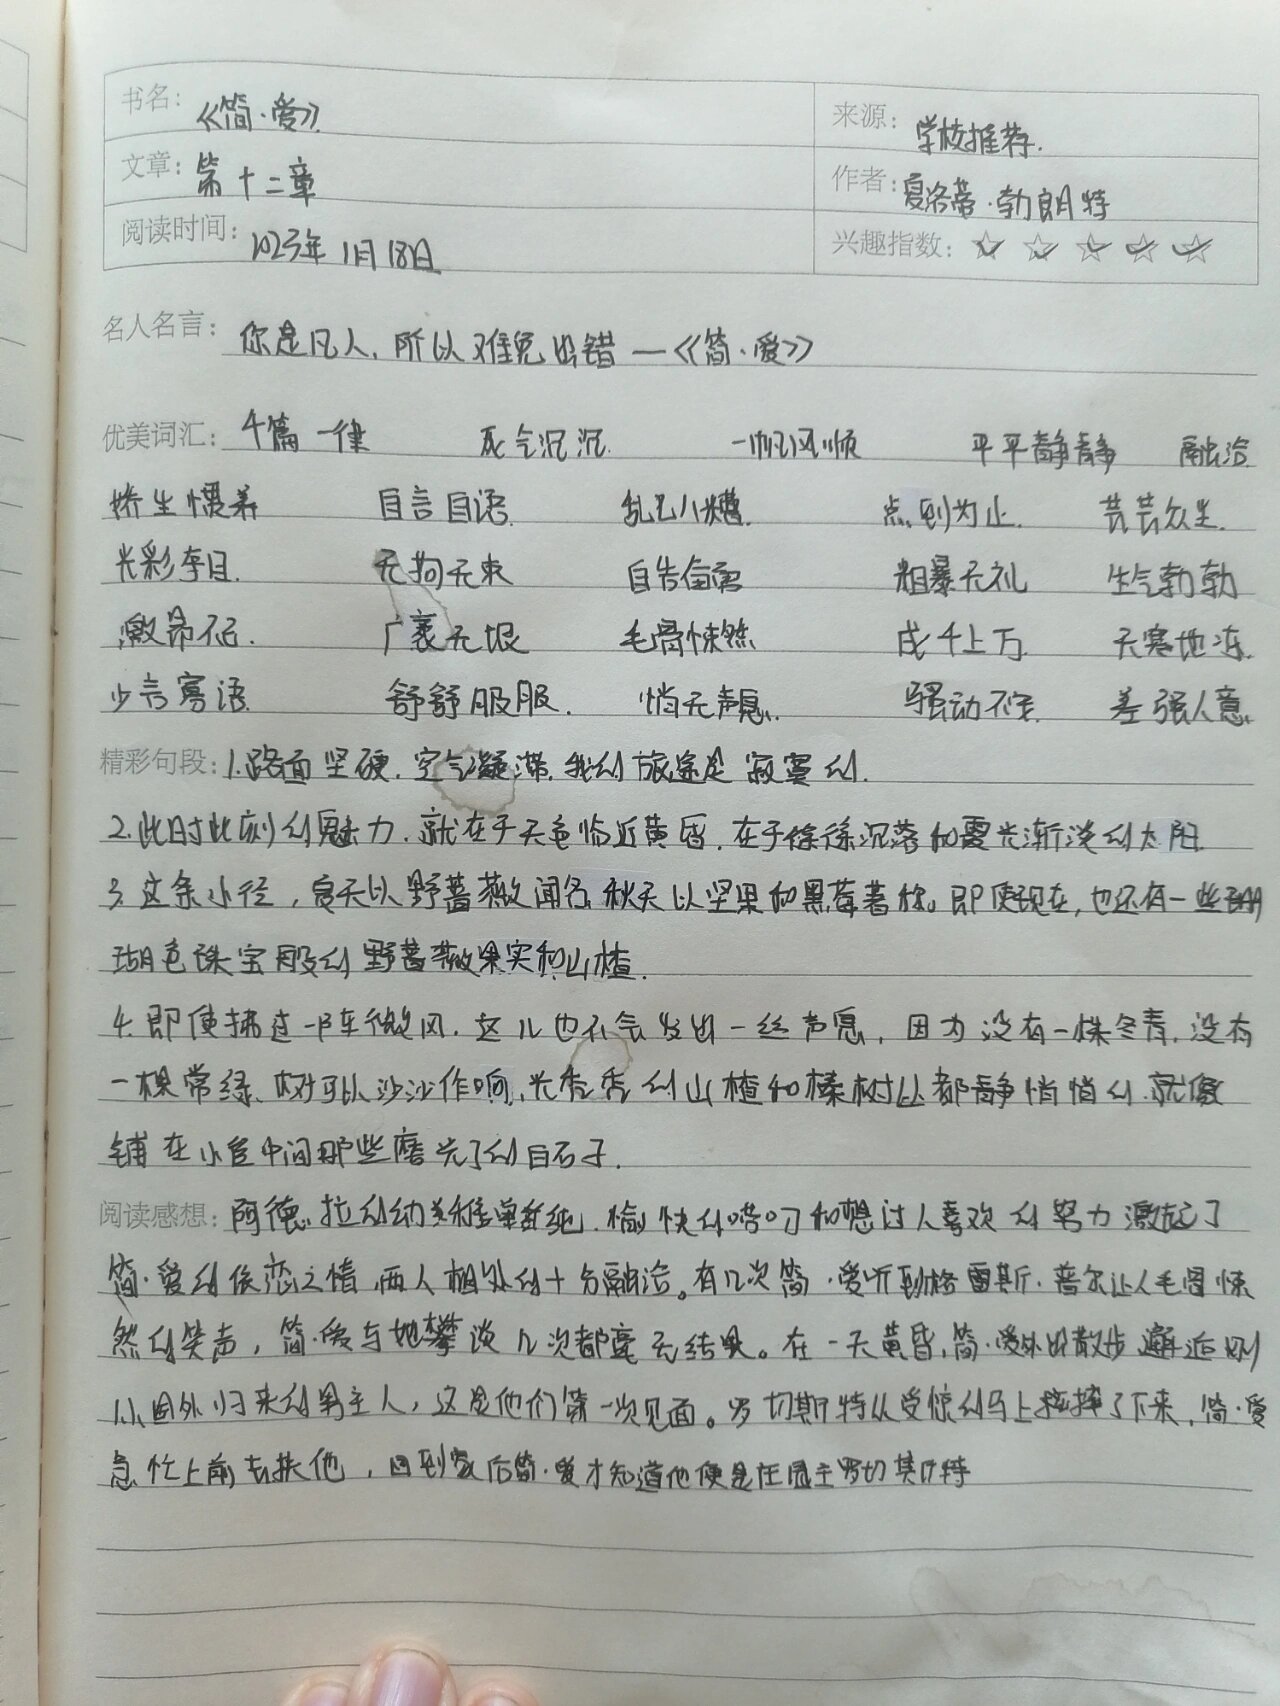 书名: 《简·爱》
来源: 学校推荐.
文章: 第十二章
作者: 夏洛蒂·勃朗特
阅读时间: 2023年1月18日
兴趣指数: ☆ ☆ ☆ ☆ ☆
名人名言: 你是凡人,所以难免出错—《简·爱》
优美词汇: 千篇一律 死气沉沉. 一帆风顺 平平静静 融洽
娇生惯养 自言自语. 乱七八糟. 点到为止. 芸芸众生.
光彩夺目. 无拘无束 自告奋勇 粗暴无礼 生气勃勃
激昂不已. 广袤无垠 毛骨悚然 成千上万. 天寒地冻.
少言寡语 舒舒服服. 悄无声息. 骚动不安. 差强人意.
精彩句段: 1.路面坚硬.空气凝滞.我的旅途是寂寞的.
2.此时此刻的魅力.就在于天色临近黄昏.在于徐徐沉落和霞光渐淡的太阳.
3.这条小径,夏天以野蔷薇闻名.秋天以坚果和黑莓著称。即使现在,也还有一些珊
瑚色珠宝般的野蔷薇果实和山楂.
4.即使拂过一阵微风.这儿也不会发出一丝声息,因为没有一株冬青,没有
一棵常绿树可以沙沙作响,光秃秃的山楂和榛树丛都静悄悄的.就像
铺在小径中间那些磨光了的白石子.
阅读感想: 阿德拉的纳美稚单纯.愉快的唠叨和想讨人喜欢的努力激起了
简·爱的依恋之情,两人相处的十分融洽。有几次简·爱听到格雷斯·普尔让人毛骨悚
然的笑声,简·爱与她攀谈几次都毫无结果。在一天黄昏,简·爱外出散步,邂逅刚
从国外归来的男主人,这是他们第一次见面。罗切斯特从受惊的马上摔了下来,简·爱
急忙上前去扶他,回到家后简·爱才知道他便是庄园主罗切斯特